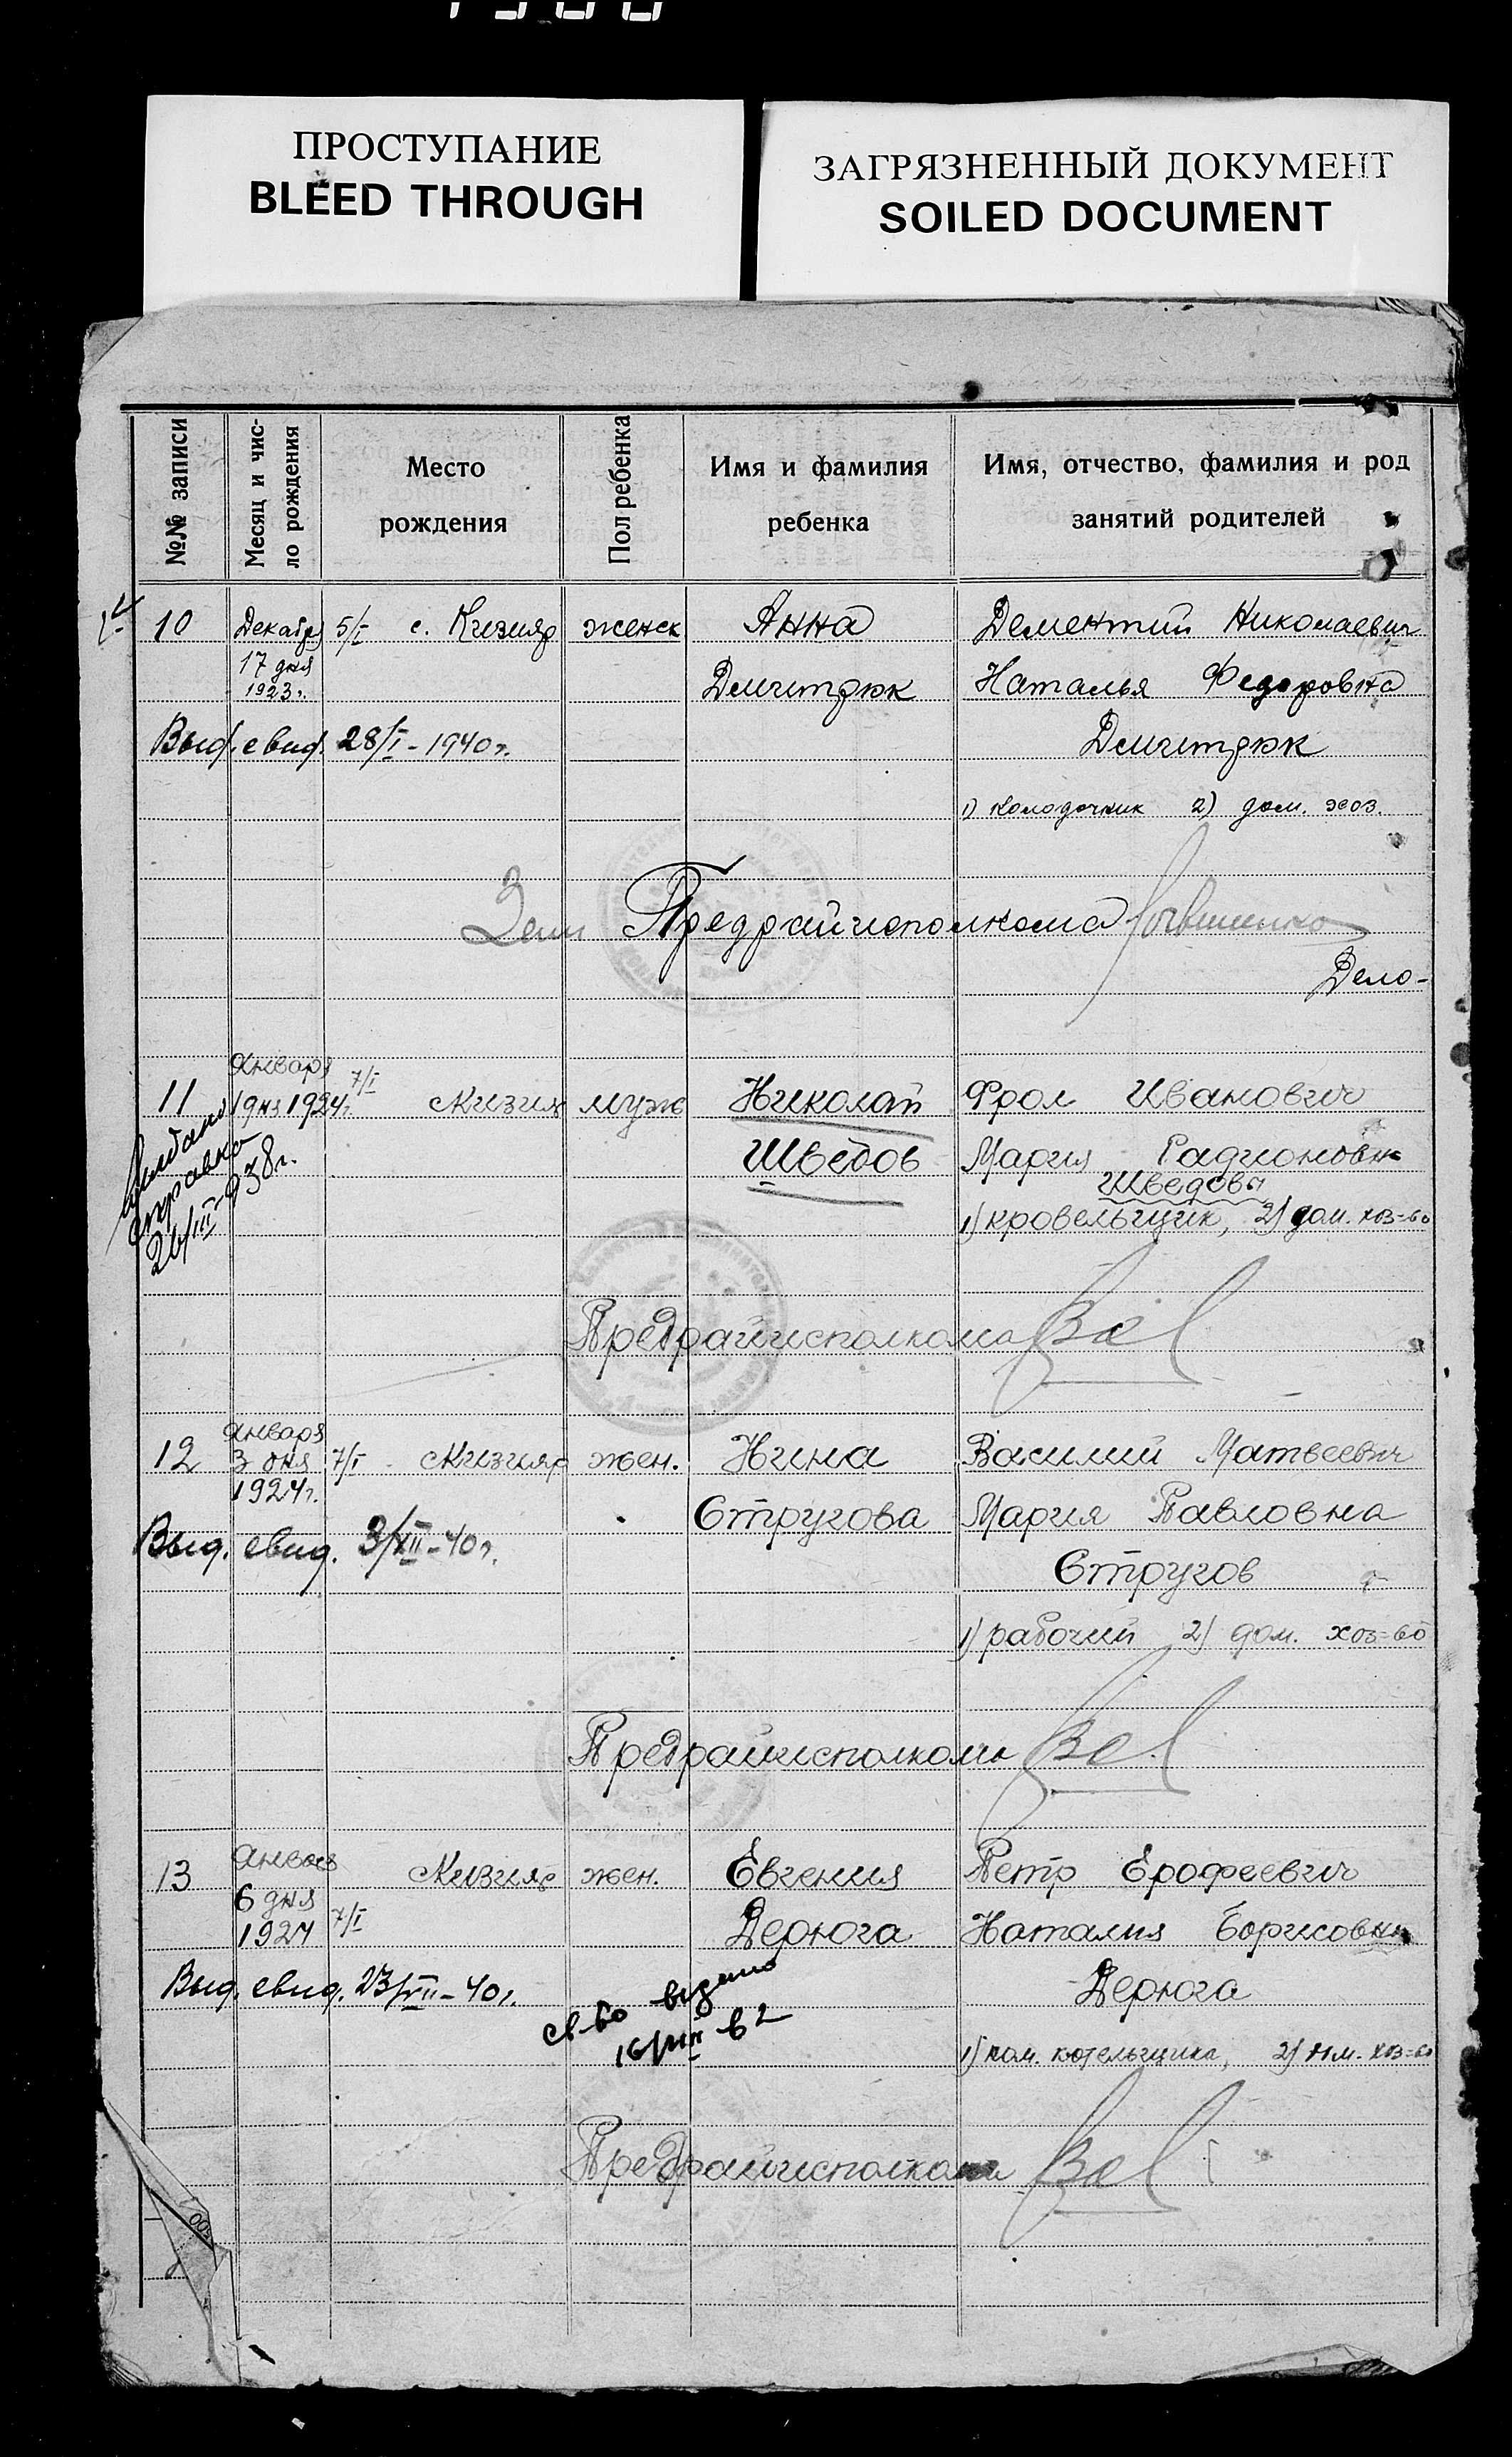 ПРОСТУПАНИЕ
BLEED THROUGH
ЗАГРЯЗНЕННЫЙ ДОКУМЕНТ
SOILED DOCUMENT
№№ записи
Месяц и чис-
ло рождения
Место
рождения
Пол ребенка
Имя и фамилия
ребенка
Имя, отчество, фамилия и род
занятий родителей
10 Декабря 5/I с. Кизияр женск Анна Дементий Николаевич
17 дня Дмитрюк Наталья Федоровна
1923 г.
Выд. свид. 28/I - 1940 г. Дмитрюк
1) колодочник 2) дом. хоз.
Зам Предрайисполкома
Дело-
Января
11 1 дня 1924 г. 7/I Кизияр муж Николай Фрол Иванович
Шведов Мария Радионовна
Шведова
1) кровельщик, 2) дом. хоз-во
Выдана
справка
26/III-938 г.
Предрайисполкома
Января
12 3 дня 7/I Кизияр жен. Нина Василий Матвеевич
1924 г.
Стругова Мария Павловна
Выд. свид. 3/XII-40 г.
Стругов
1) рабочий 2) дом. хоз-во
Предрайисполкома
13 Января Кизияр жен. Евгения Петр Ерофеевич
6 дня
1924 7/I Дерюга Наталия Борисовна
Выд. свид. 23/VII-40 г. Дерюга
св-во видано
1) пом. котельщика, 2) дом. хоз-во
Предрайисполкома